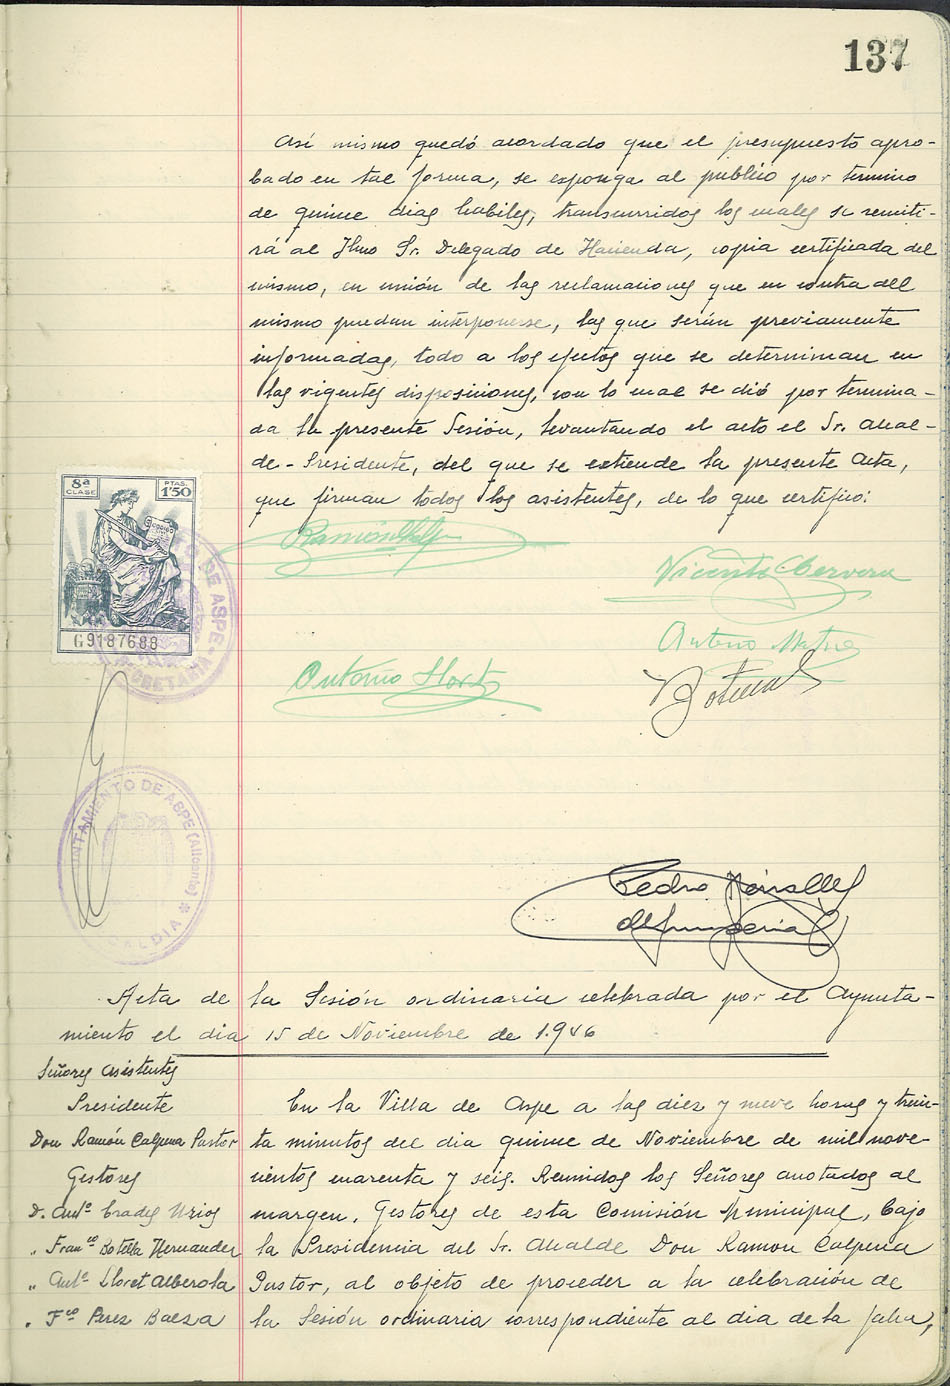 137
Así mismo quedó acordado que el presupuesto apro-
bado en tal forma, se exponga al publico por termino
de quince dias habiles, transcurridos los cuales se remiti-
rá al Ilmo Sr. Delegado de Hacienda, copia certificada del
mismo, en unión de las reclamaciones que en contra del
mismo puedan interponerse, las que serán previamente
informadas, todo a los efectos que se determinan en
las vigentes disposiciones, con lo cual se dió por termina-
da la presente Sesión, levantando el acto el Sr. Alcal-
de-Presidente, del que se extiende la presente Acta,
que firman todos los asistentes, de lo que certifico:
8ª CLASE
PTAS. 1'50
G9187688
DE ASPE
SECRETARIA
Vicente Cervera
Arturo
Antonio Lloret
AYUNTAMIENTO DE ASPE (Alicante)
ALCALDIA
Pedro
Acta de la Sesión ordinaria celebrada por el Ayunta-
miento el dia 15 de Noviembre de 1.946
Señores Asistentes
Presidente
Don Ramón Calpena Pastor
Gestores
D. Antº Prades Urios
" Franco Botella Hernandez
" Antº Lloret Alberola
" Fco Perez Baeza
En la Villa de Aspe a las diez y nueve horas y trein-
ta minutos del dia quince de Noviembre de mil nove-
cientos cuarenta y seis. Reunidos los Señores anotados al
margen, Gestores de esta Comisión Municipal, bajo
la Presidencia del Sr. Alcalde Don Ramon Calpena
Pastor, al objeto de proceder a la celebración de
la Sesión ordinaria correspondiente al dia de la fecha,